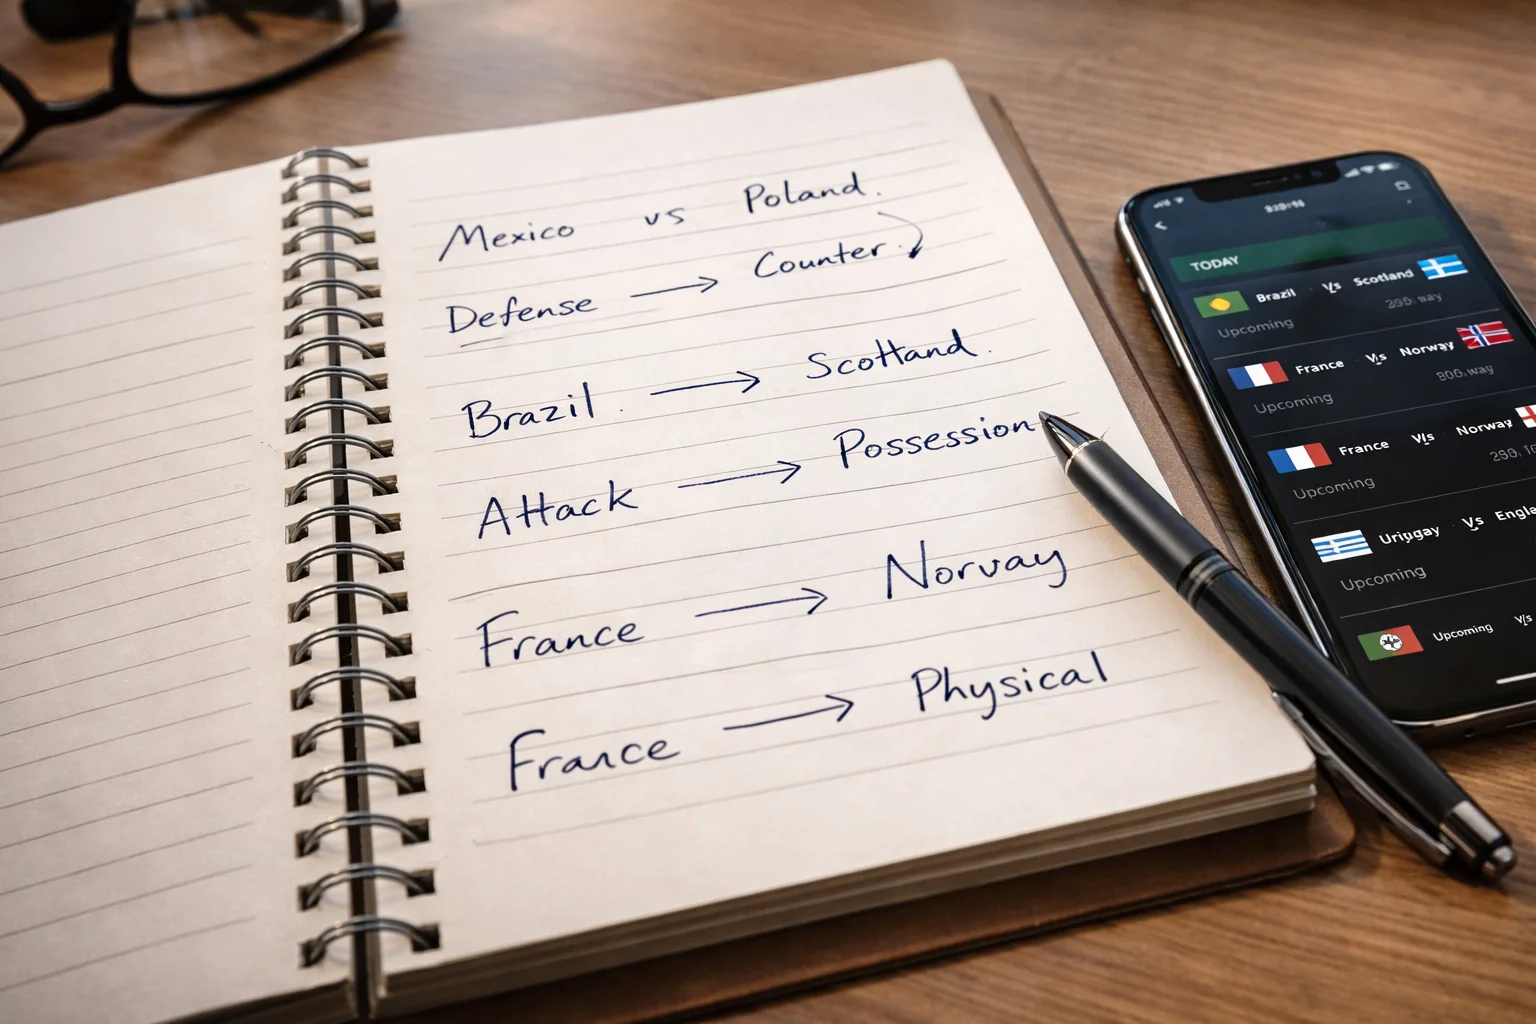 Mexico vs Poland.
Defense → Counter.
Brazil. → Scottand.
Attack → Possession
France → Norvay
France → Physical
TODAY
Brazil Vs Scotland
Upcoming
France Vs Norway
Upcoming
France Vs Norway
Upcoming
Vs Engla
Upcoming
Upcoming Vs